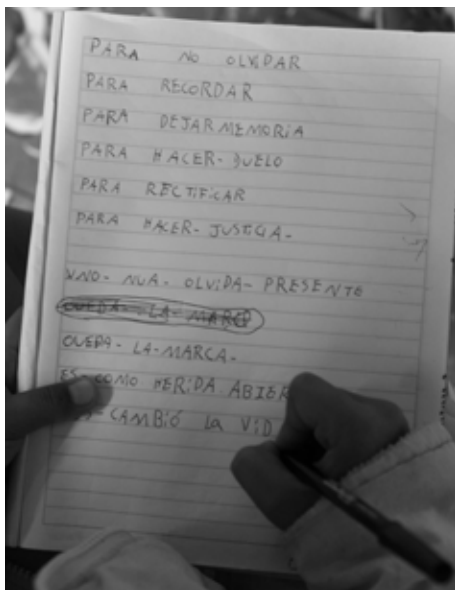 PARA NO OLVIDAR
PARA RECORDAR
PARA DEJAR MEMORIA
PARA HACER- DUELO
PARA RECTIFICAR
PARA HACER- JUSTICIA-
UNO- NUA- OLVIDA- PRESENTE
QUEDA- LA- MARCA
QUEDA- LA-MARCA-
ES-COMO HERIDA ABIER
CAMBIÓ LA VID